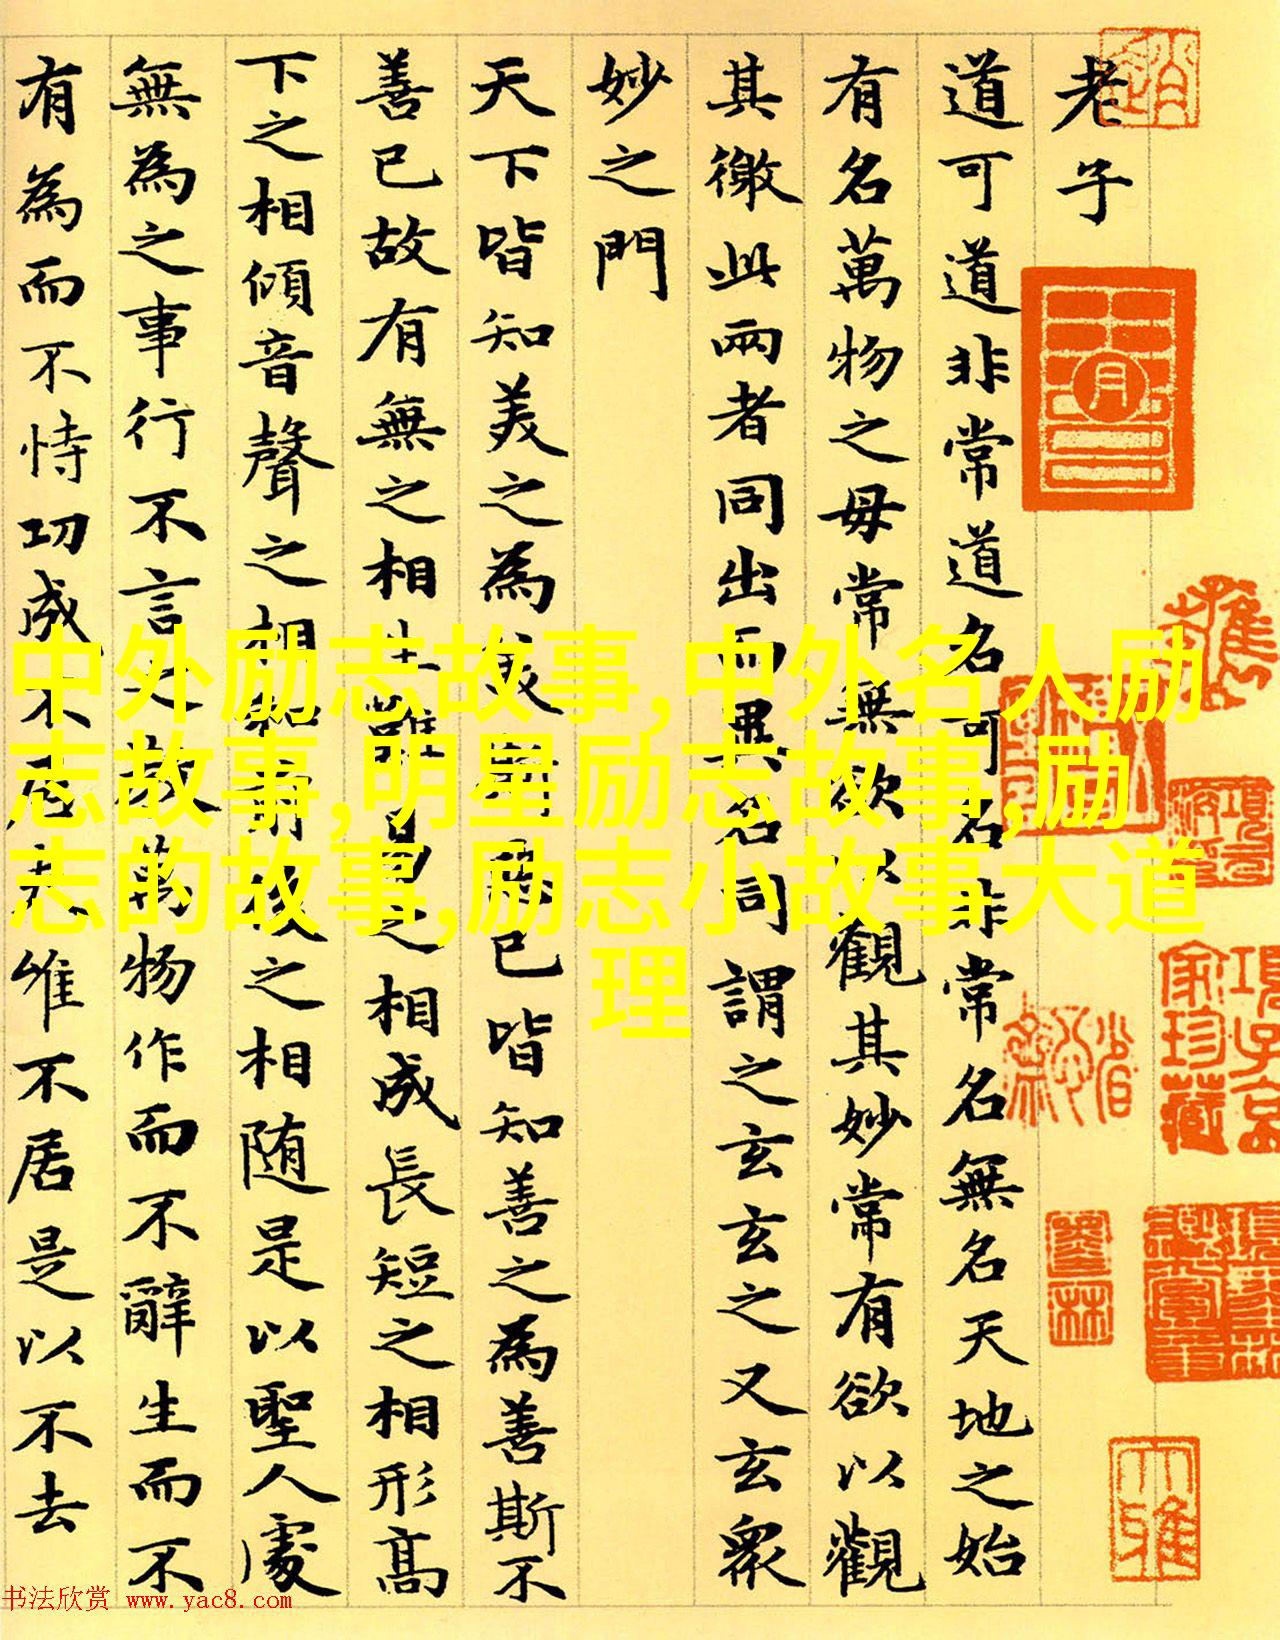 老子
道可道非常道名可名非常名無名天地之始
有名萬物之母常無欲以觀其妙常有欲以觀
其徼此兩者同出而異名同謂之玄玄之又玄眾
妙之門
天下皆知美之為美斯惡已皆知善之為善斯不
善已故有無之相生難易之相成長短之相形高
下之相傾音聲之相和前後之相随是以聖人處
無為之事行不言之教萬物作而不辭生而不
有為而不恃功成不居夫唯不居是以不去
中外励志故事,中外名人励
志故事,明星励志故事,励
志的故事,励志小故事大道
理
書法欣赏 www.yac8.com